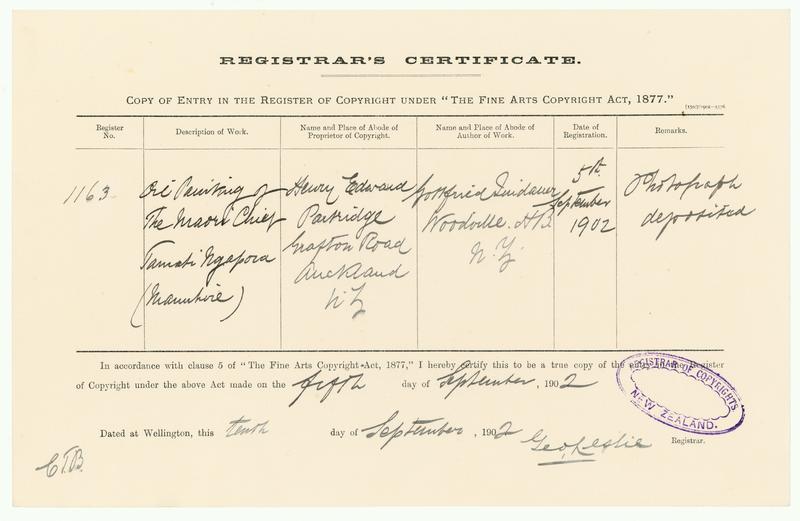 REGISTRAR'S CERTIFICATE.
COPY OF ENTRY IN THE REGISTER OF COPYRIGHT UNDER "THE FINE ARTS COPYRIGHT ACT, 1877."
Register No.
Description of Work.
Name and Place of Abode of Proprietor of Copyright.
Name and Place of Abode of Author of Work.
Date of Registration.
Remarks.
1163
Oil Painting of
The Maori Chief
Tamati Ngapora
(Manuhire)
Henry Edward
Partridge
Grafton Road
Auckland
N Z
Gottfried Lindauer
Woodville. H B
N. Z.
5th
September
1902
Photograph
deposited
In accordance with clause 5 of "The Fine Arts Copyright Act, 1877," I hereby certify this to be a true copy of the entry in the Register
of Copyright under the above Act made on the fifth day of September, 1902
REGISTRAR OF COPYRIGHTS
NEW ZEALAND.
Dated at Wellington, this tenth day of September, 1902
Geo Leslie
Registrar.